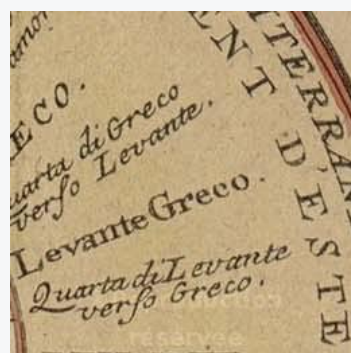 amor
ECO.
uarta di Greco
verſo Levante.
Levante Greco.
Quarta di Levante
verſo Greco.
ENT D'ESTE
ITERRAN
réservée